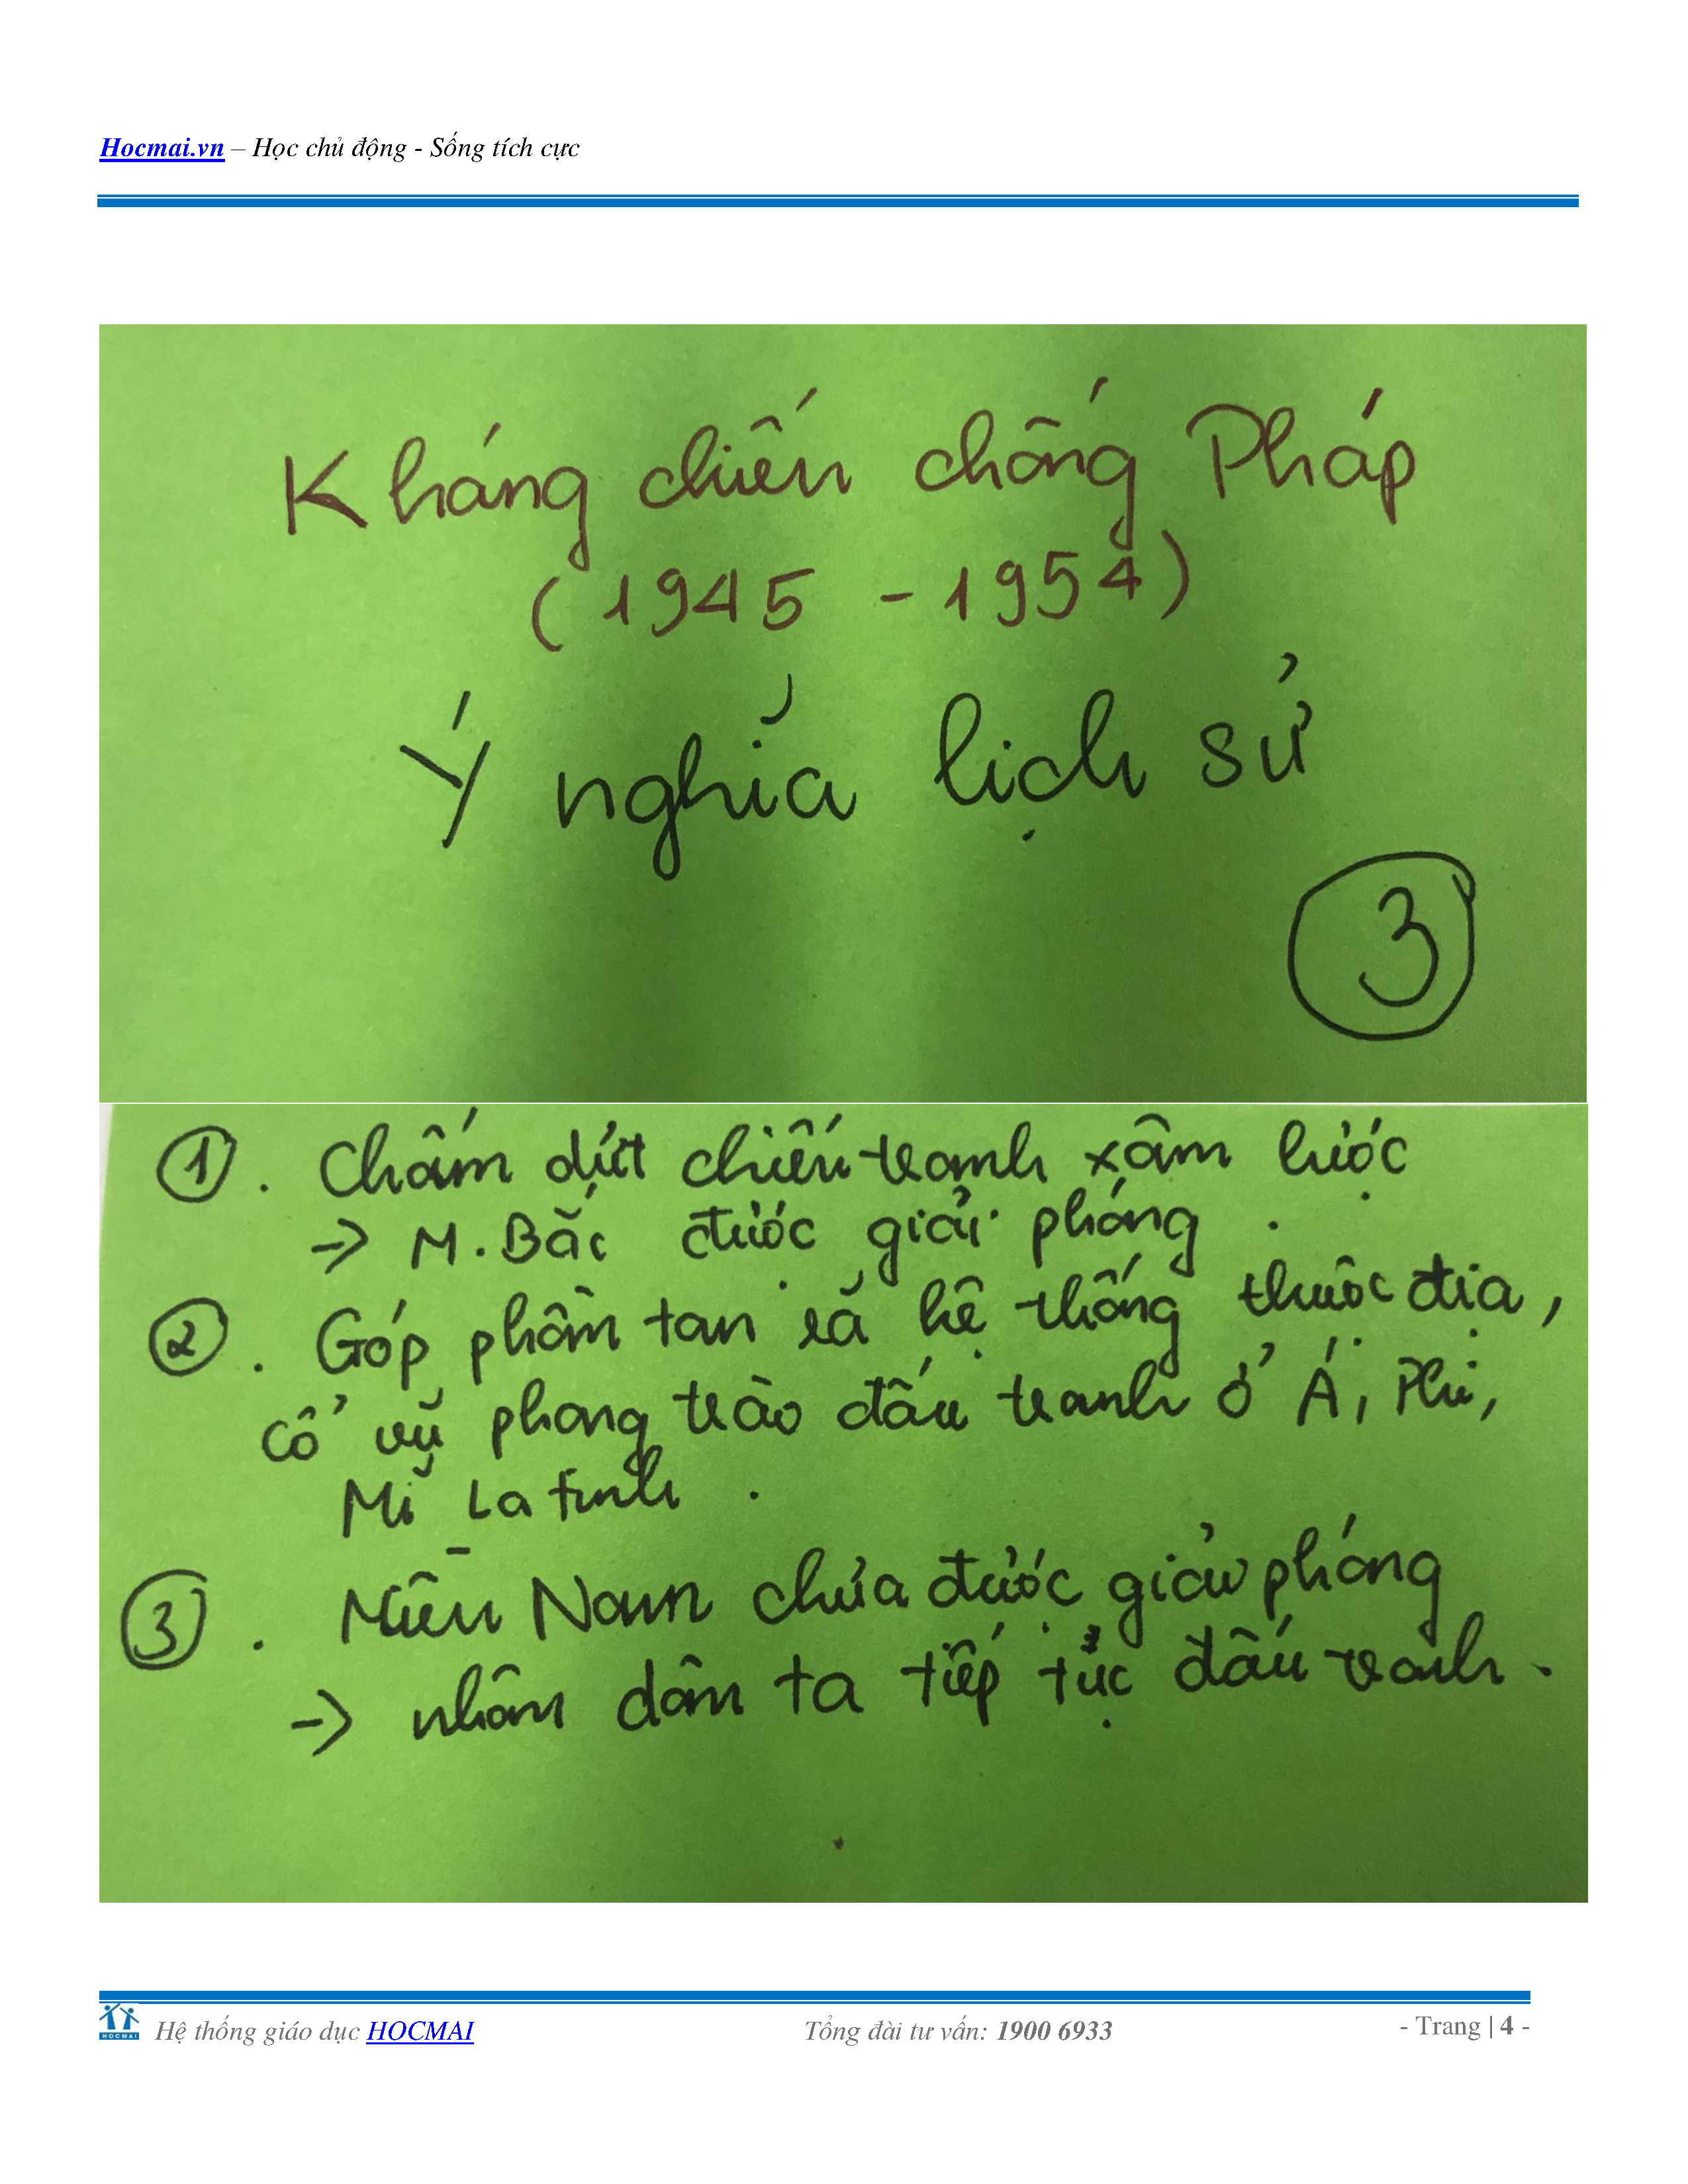 Hocmai.vn – Học chủ động - Sống tích cực
Kháng chiến chống Pháp
(1945 - 1954)
Ý nghĩa lịch sử
3
1. Chấm dứt chiến tranh xâm lược
-> M. Bắc được giải phóng.
2. Góp phần tan rã hệ thống thuộc địa,
cổ vũ phong trào đấu tranh ở Á, Phi,
Mĩ La tinh.
3. Miền Nam chưa được giải phóng
-> nhân dân ta tiếp tục đấu tranh.
HOCMAI
Hệ thống giáo dục HOCMAI Tổng đài tư vấn: 1900 6933 - Trang | 4 -